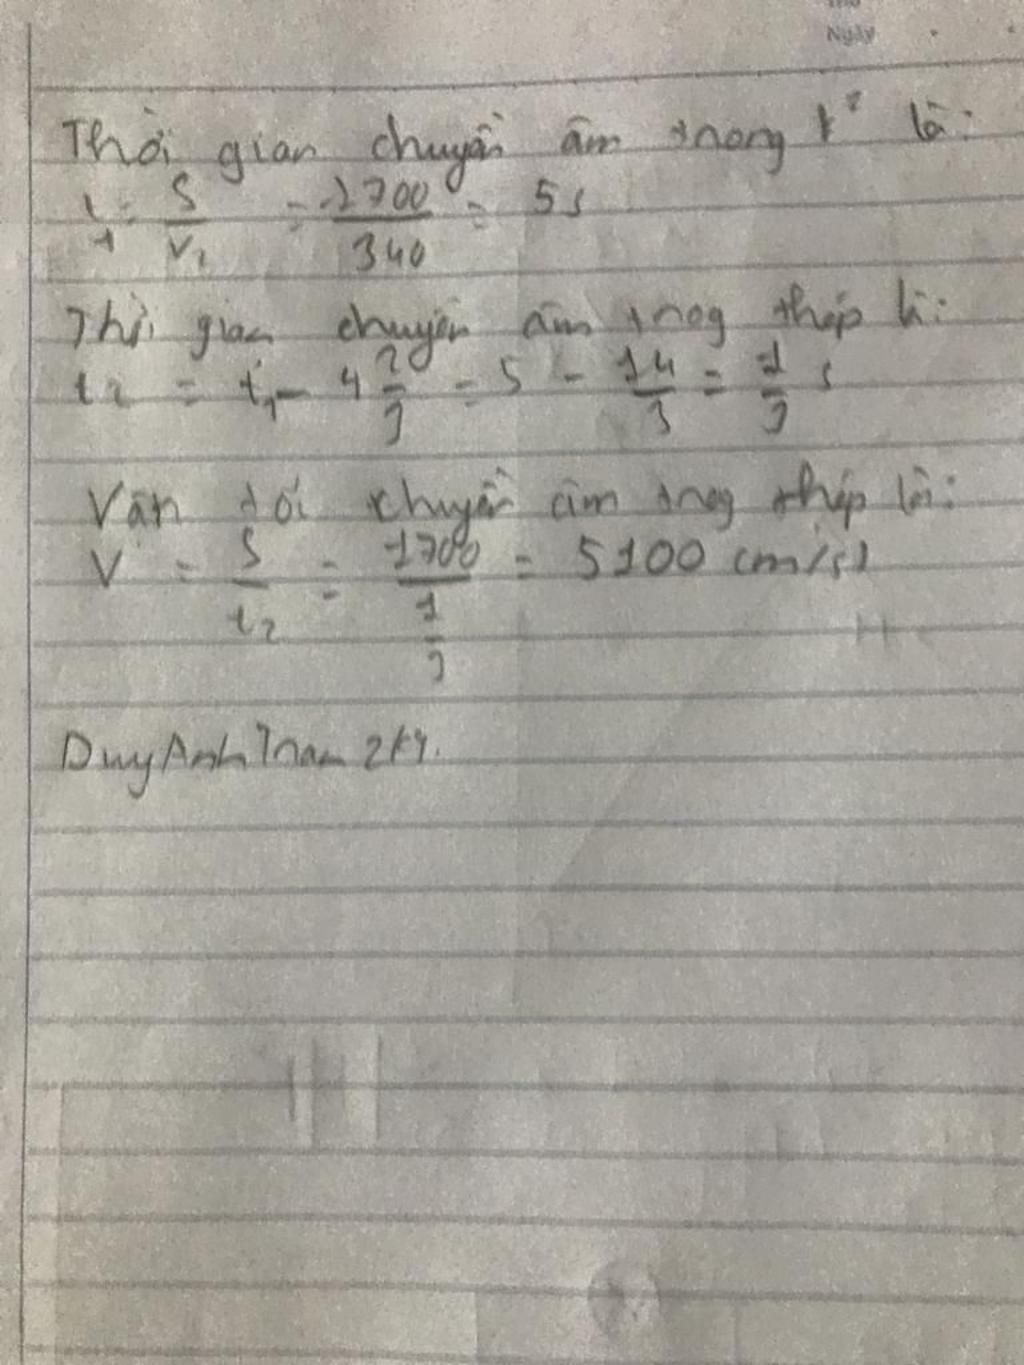 Ngày
Thời gian chuyền âm trong k² là:
t₁ = S/v₁ = 1700/340 = 5s
Thời gian chuyền âm trog thép là:
t₂ = t₁ - 4 2/3 = 5 - 14/3 = 1/3 s
Vận tốc chuyền âm trog thép là:
V = S/t₂ = 1700/(1/3) = 5100 (m/s)
DuyAnhTran 2k9.